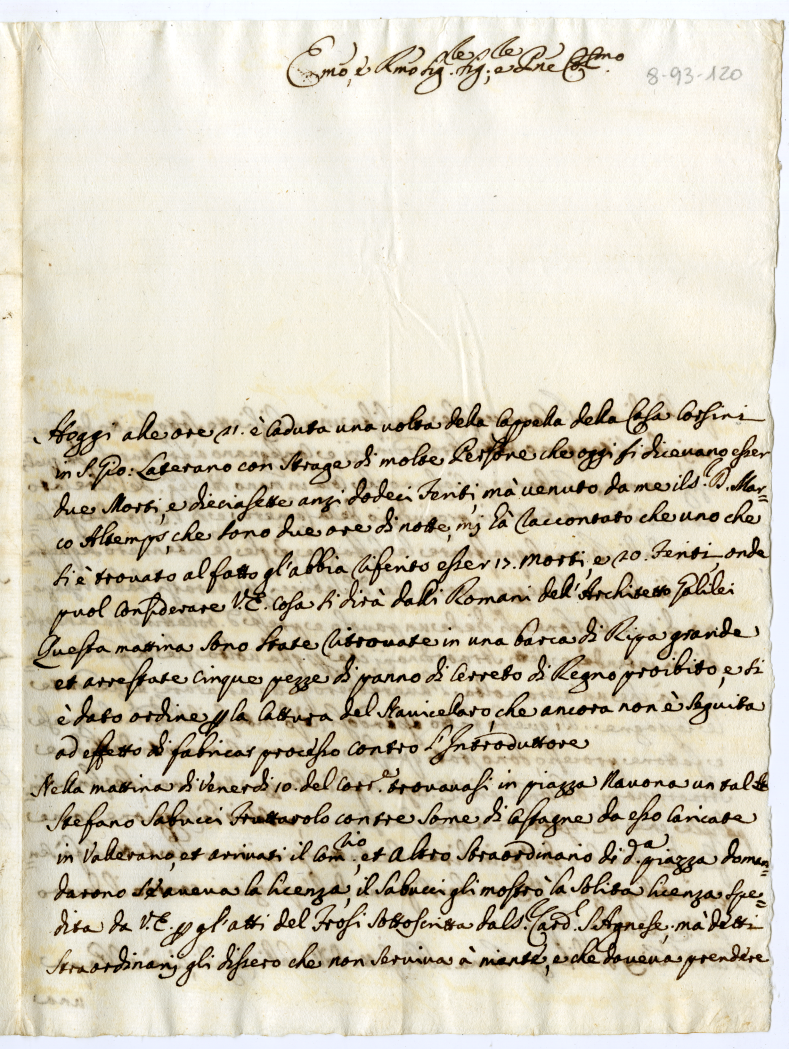 Emo, e Rmo Sig.re Sig.re, e Pne Colmo
8-93-120
Hoggi alle ore 21. è caduta una volta della Cappella della Casa Corsini
in S. Gio: Laterano con strage di molte Persone che oggi si dicevano esser
due Morti, e dieciasette anzi dodeci feriti, mà venuto da me il S. D. Mar=
co Altemps, che sono due ore di notte, mi hà raccontato che uno che
si è trovato al fatto gl'abbia riferito esser 17. morti, e 20. feriti, onde
puol considerare V.E. cosa si dirà dalli Romani dell'Architetto Galilei
Questa mattina sono state ritrovate in una barca di Ripa grande
et arrestate cinque pezze di panno di Cerreto di Regno proibito, e si
è dato ordine p la cattura del Navicellaro che ancora non è seguita
ad effetto di fabricar processo contro l'Introduttore
Nella mattina di Venerdi 10. del corr.e trovavasi in piazza Navona un tal
Stefano Sabucci fruttarolo con tre some di Castagne da esso caricate
in Vallerano, et arrivati il Com.rio, et altro straordinario di d.a piazza doman=
darono se aveva la licenza, il Sabucci gli mostrò la solita licenza spe=
dita da V.E. p gl'atti del Frosi sottoscritta dal S. Card.l S. Agnese, mà detti
straordinarij gli dissero che non serviva à niente, e che doveva prendere